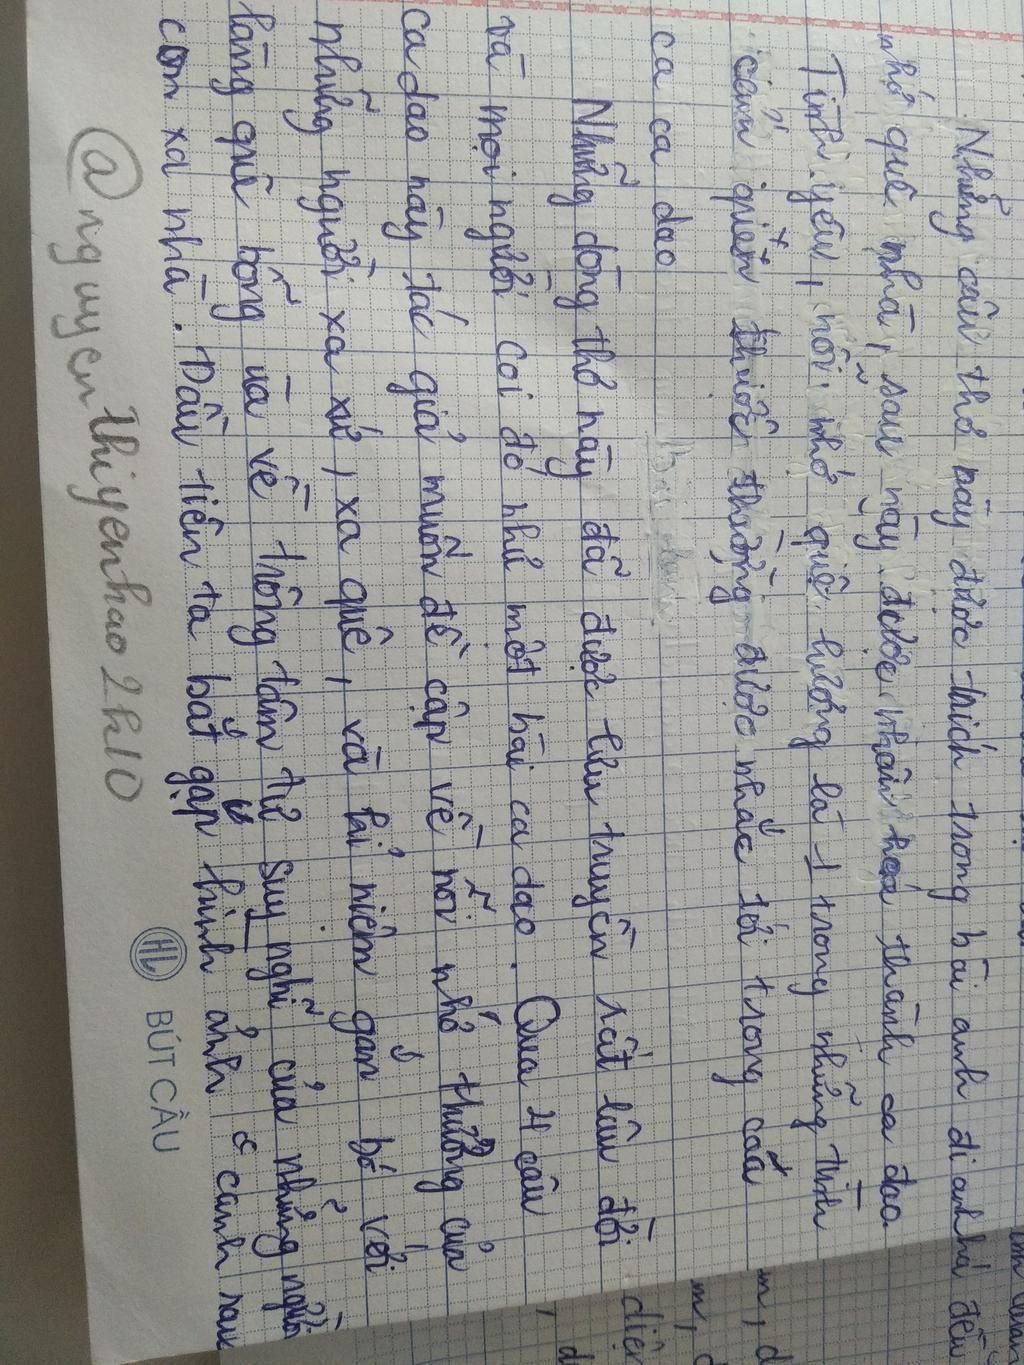 Những câu thơ này được trích trong bài anh đi anh nhớ đến
nhớ quê nhà, sau này được nhân hoá thành ca dao
Tình yêu, nỗi nhớ quê hương là 1 trong những tình
cảm quen thuộc thường được nhắc tới trong các
ca ca dao
Những dòng thơ này đã được lưu truyền rất lâu đời
và mọi người coi đó như một bài ca dao. Qua 4 câu
ca dao này tác giả muốn đề cập về nỗi nhớ thương của
những người xa xứ, xa quê, và kỉ niệm gắn bó với
làng quê bỗng ùa về trông tâm tư suy nghĩ của những người
con xa nhà. Dầu tiên ta bắt gặp hình ảnh canh rau
@nguyenthiyenhao2k10
HL BÚT CÂU